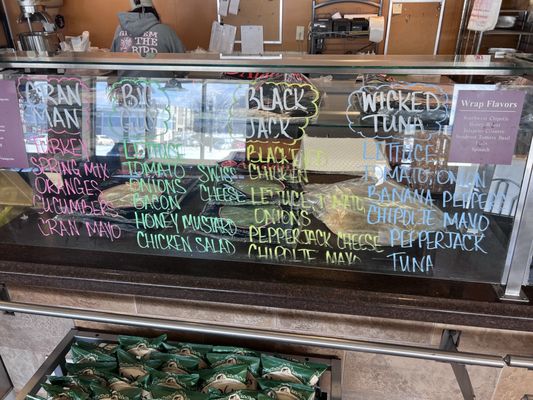 CRAN
MAN
TURKEY
SPRING MIX
ORANGES
CUCUMBERS
CRAN MAYO
BIG
LETTUCE
TOMATO
ONIONS
SWISS
CHEESE
BACON
HONEY MUSTARD
CHICKEN SALAD
BLACK
JACK
BLACKENED
CHICKEN
LETTUCE TOMATO
ONIONS
PEPPERJACK CHEESE
CHIPOTLE MAYO
WICKED
TUNA
LETTUCE
TOMATO ONION
BANANA PEPPER
CHIPOTLE MAYO
PEPPERJACK
TUNA
Wrap Flavors
Southwest Chipotle
Honey Wheat
Jalapeno Cilantro
Sundried Tomato Basil
Spinach
THEM
THE BIRD